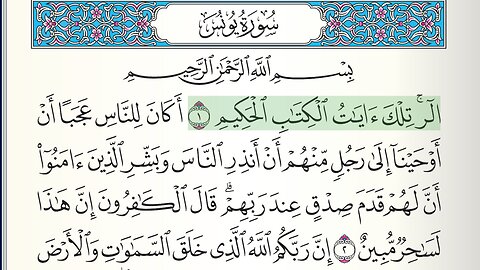 سُورَةُ يُونُسَ
بِسْمِ ٱللَّهِ ٱلرَّحْمَٰنِ ٱلرَّحِيمِ
الٓرۚ تِلْكَ ءَايَٰتُ ٱلْكِتَٰبِ ٱلْحَكِيمِ ١ أَكَانَ لِلنَّاسِ عَجَبًا أَنْ
أَوْحَيْنَآ إِلَىٰ رَجُلٍ مِّنْهُمْ أَنْ أَنذِرِ ٱلنَّاسَ وَبَشِّرِ ٱلَّذِينَ ءَامَنُوٓا۟
أَنَّ لَهُمْ قَدَمَ صِدْقٍ عِندَ رَبِّهِمْۗ قَالَ ٱلْكَٰفِرُونَ إِنَّ هَٰذَا
لَسَٰحِرٌ مُّبِينٌ ٢ إِنَّ رَبَّكُمُ ٱللَّهُ ٱلَّذِى خَلَقَ ٱلسَّمَٰوَٰتِ وَٱلْأَرْضَ